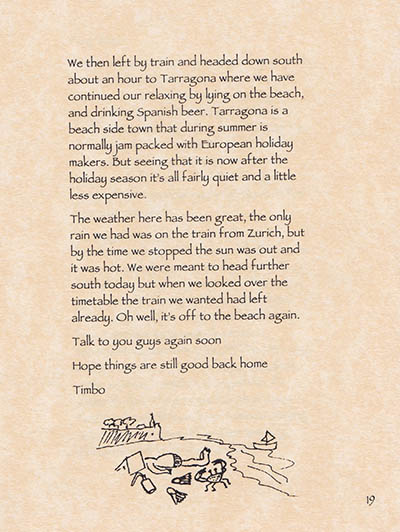 We then left by train and headed down south
about an hour to Tarragona where we have
continued our relaxing by lying on the beach,
and drinking Spanish beer. Tarragona is a
beach side town that during summer is
normally jam packed with European holiday
makers. But seeing that it is now after the
holiday season it's all fairly quiet and a little
less expensive.
The weather here has been great, the only
rain we had was on the train from Zurich, but
by the time we stopped the sun was out and
it was hot. We were meant to head further
south today but when we looked over the
timetable the train we wanted had left
already. Oh well, it's off to the beach again.
Talk to you guys again soon
Hope things are still good back home
Timbo
19